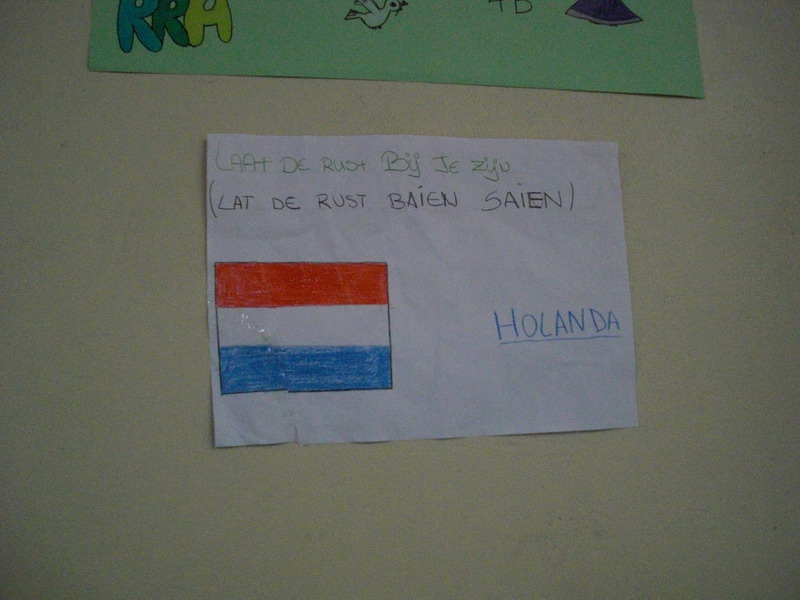 RRA
4D
LAAT DE RUST Bij JE zijn
(LAT DE RUST BAÍEN SAÍEN)
HOLANDA